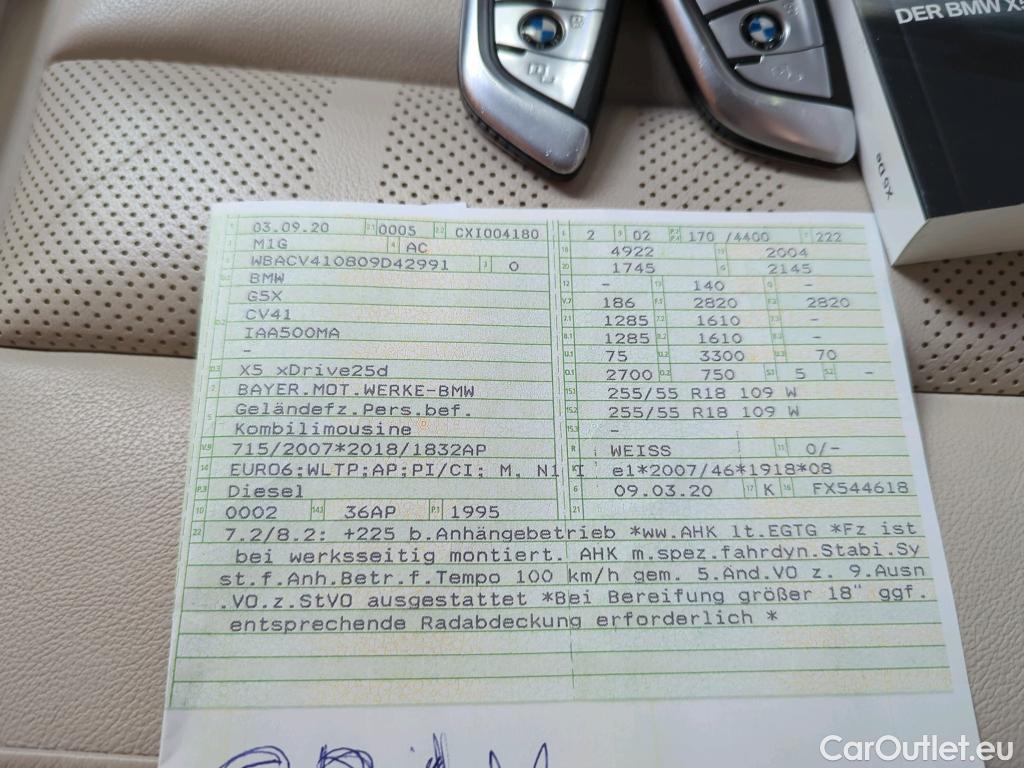 DER BMW X5
X5 De
03.09.20 2.1 0005 2.2 CXI004180
M1G 4 AC
WBACV410809D42991 3 0
BMW
G5X
CV41
IAA500MA
-
X5 xDrive25d
BAYER.MOT.WERKE-BMW
Geländefz.Pers.bef.
Kombilimousine
V.9 715/2007*2018/1832AP
14 EURO6;WLTP;AP;PI/CI; M, N1 I
P.3 Diesel
10 0002 14.1 36AP P.1 1995
L 2 9 02 P.2 P.4 170 /4400 T 222
18 4922 19 2004
20 1745 G 2145
12 - 13 140 Q -
V.7 186 F.1 2820 F.2 2820
7.1 1285 7.2 1610 7.3 -
8.1 1285 8.2 1610 8.3 -
U.1 75 U.2 3300 U.3 70
O.1 2700 O.2 750 S.1 5 S.2 -
15.1 255/55 R18 109 W
15.2 255/55 R18 109 W
15.3 -
R WEISS 11 0/-
K e1*2007/46*1918*08
6 09.03.20 17 K 16 FX544618
21
22 7.2/8.2: +225 b.Anhängebetrieb *ww.AHK lt.EGTG *Fz ist
bei werksseitig montiert. AHK m.spez.fahrdyn.Stabi.Sy
st.f.Anh.Betr.f.Tempo 100 km/h gem. 5.Änd.VO z. 9.Ausn
.VO.z.StVO ausgestattet *Bei Bereifung größer 18" ggf.
entsprechende Radabdeckung erforderlich *
CarOutlet.eu